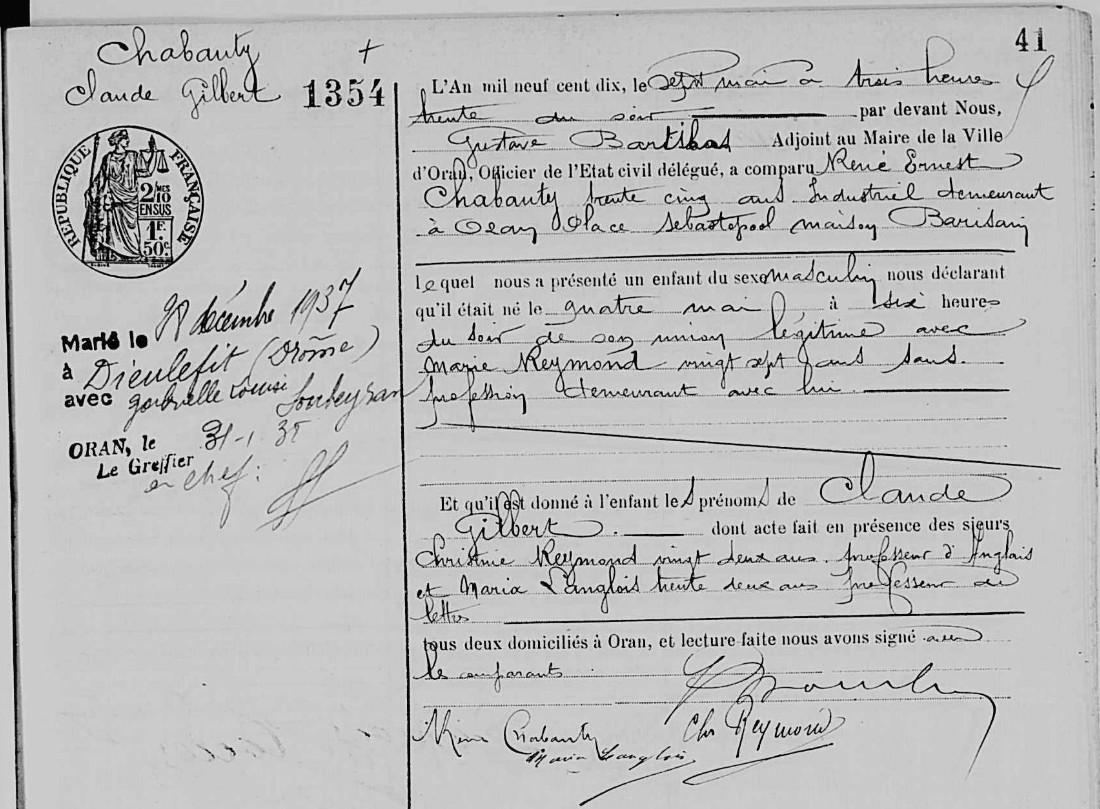 41
Chabauty
Claude Gilbert
1354
RÉPUBLIQUE FRANÇAISE
2/10MES
EN SUS
1F.
50c.
Marié le 28 décembre 1937
à Dieulefit (Drôme)
avec Gabrielle Louise Soubeyran
ORAN, le 31-1 38
Le Greffier
en chef:
L'An mil neuf cent dix, le Sept mai à trois heures
trente du soir par devant Nous,
Gustave Adjoint au Maire de la Ville
d'Oran, Officier de l'Etat civil délégué, a comparu René Ernest
Chabauty trente cinq ans Industriel demeurant
à Oran Place Sébastopool maison Barisain
lequel nous a présenté un enfant du sexe masculin nous déclarant
qu'il était né le quatre mai à six heures
du soir de son union légitime avec
Marie Reymond vingt sept ans sans
profession demeurant avec lui
Et qu'il est donné à l'enfant les prénoms de Claude
Gilbert. dont acte fait en présence des sieurs
Christine Reymond vingt deux ans. professeur d'Anglais
et Maria Langlois trente deux ans professeur de
lettres
tous deux domiciliés à Oran, et lecture faite nous avons signé avec
les comparants
René Chabauty
Chr Reymond
Maria Langlois